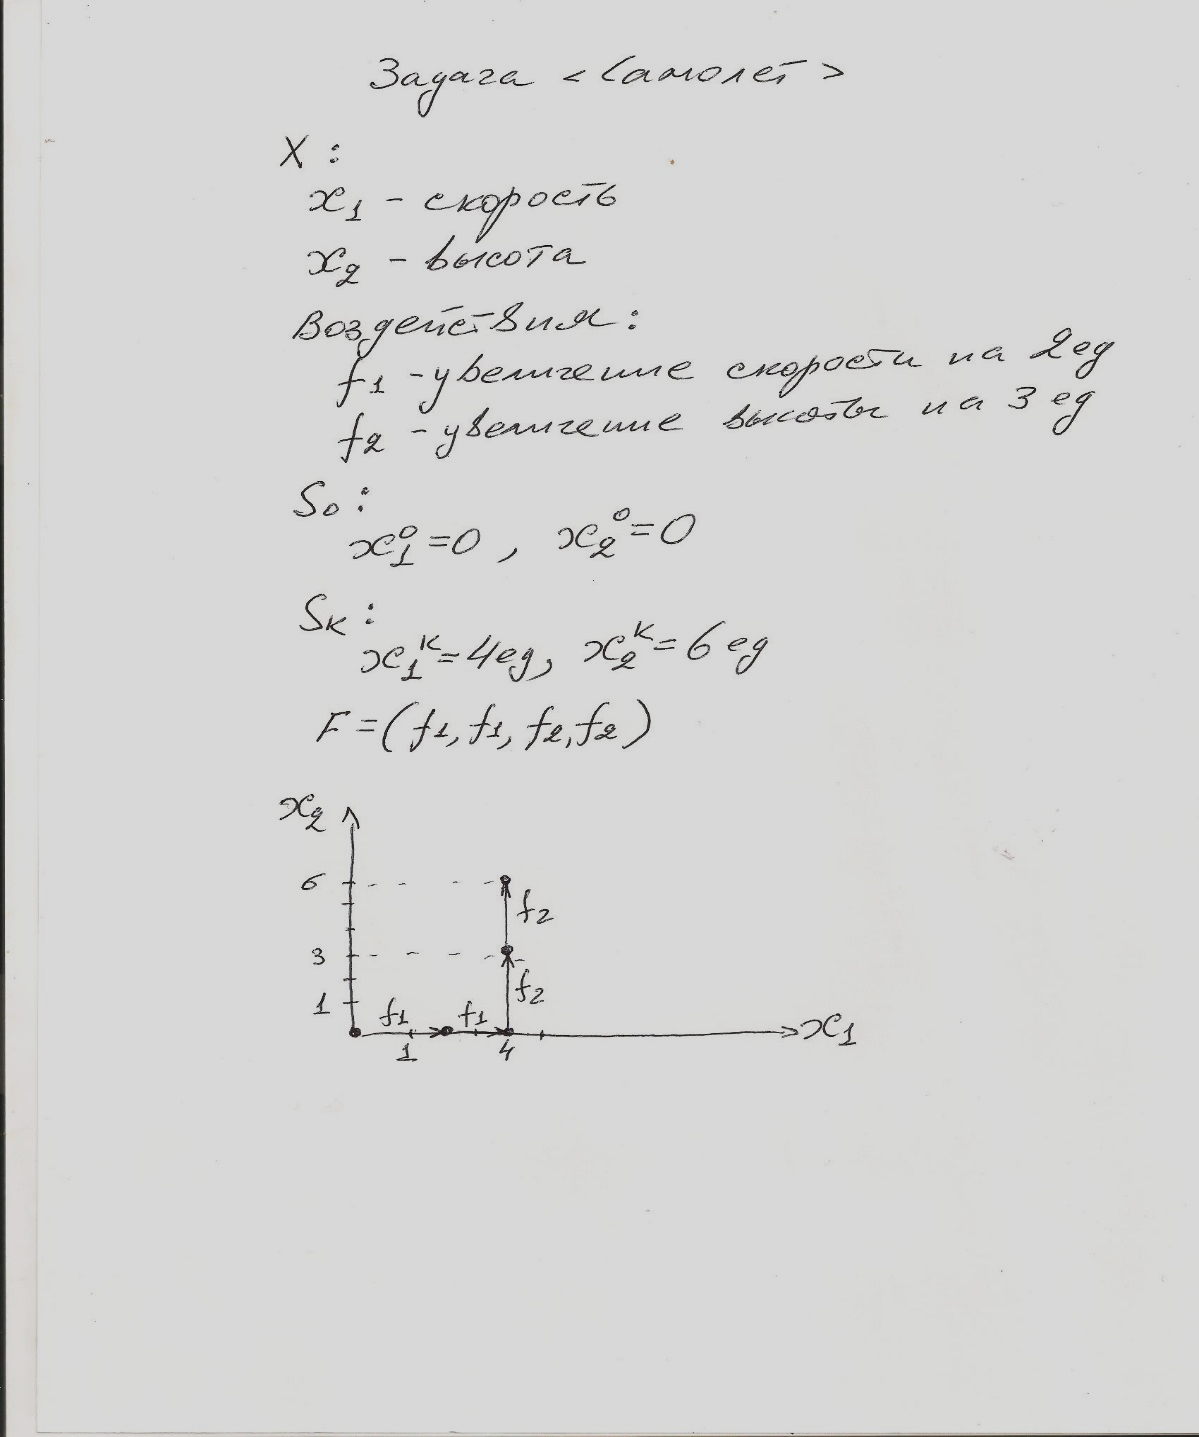 Задача <Самолет>
X :
x₁ - скорость
x₂ - высота
Воздействия :
f₁ - увеличение скорости на 2 ед
f₂ - увеличение высоты на 3 ед
S₀ :
x₁⁰ = 0 , x₂⁰ = 0
Sк :
x₁ᴷ = 4 ед, x₂ᴷ = 6 ед
F = (f₁, f₁, f₂, f₂)
x₂
6
f₂
3
f₂
1
f₁ f₁
x₁
1 4